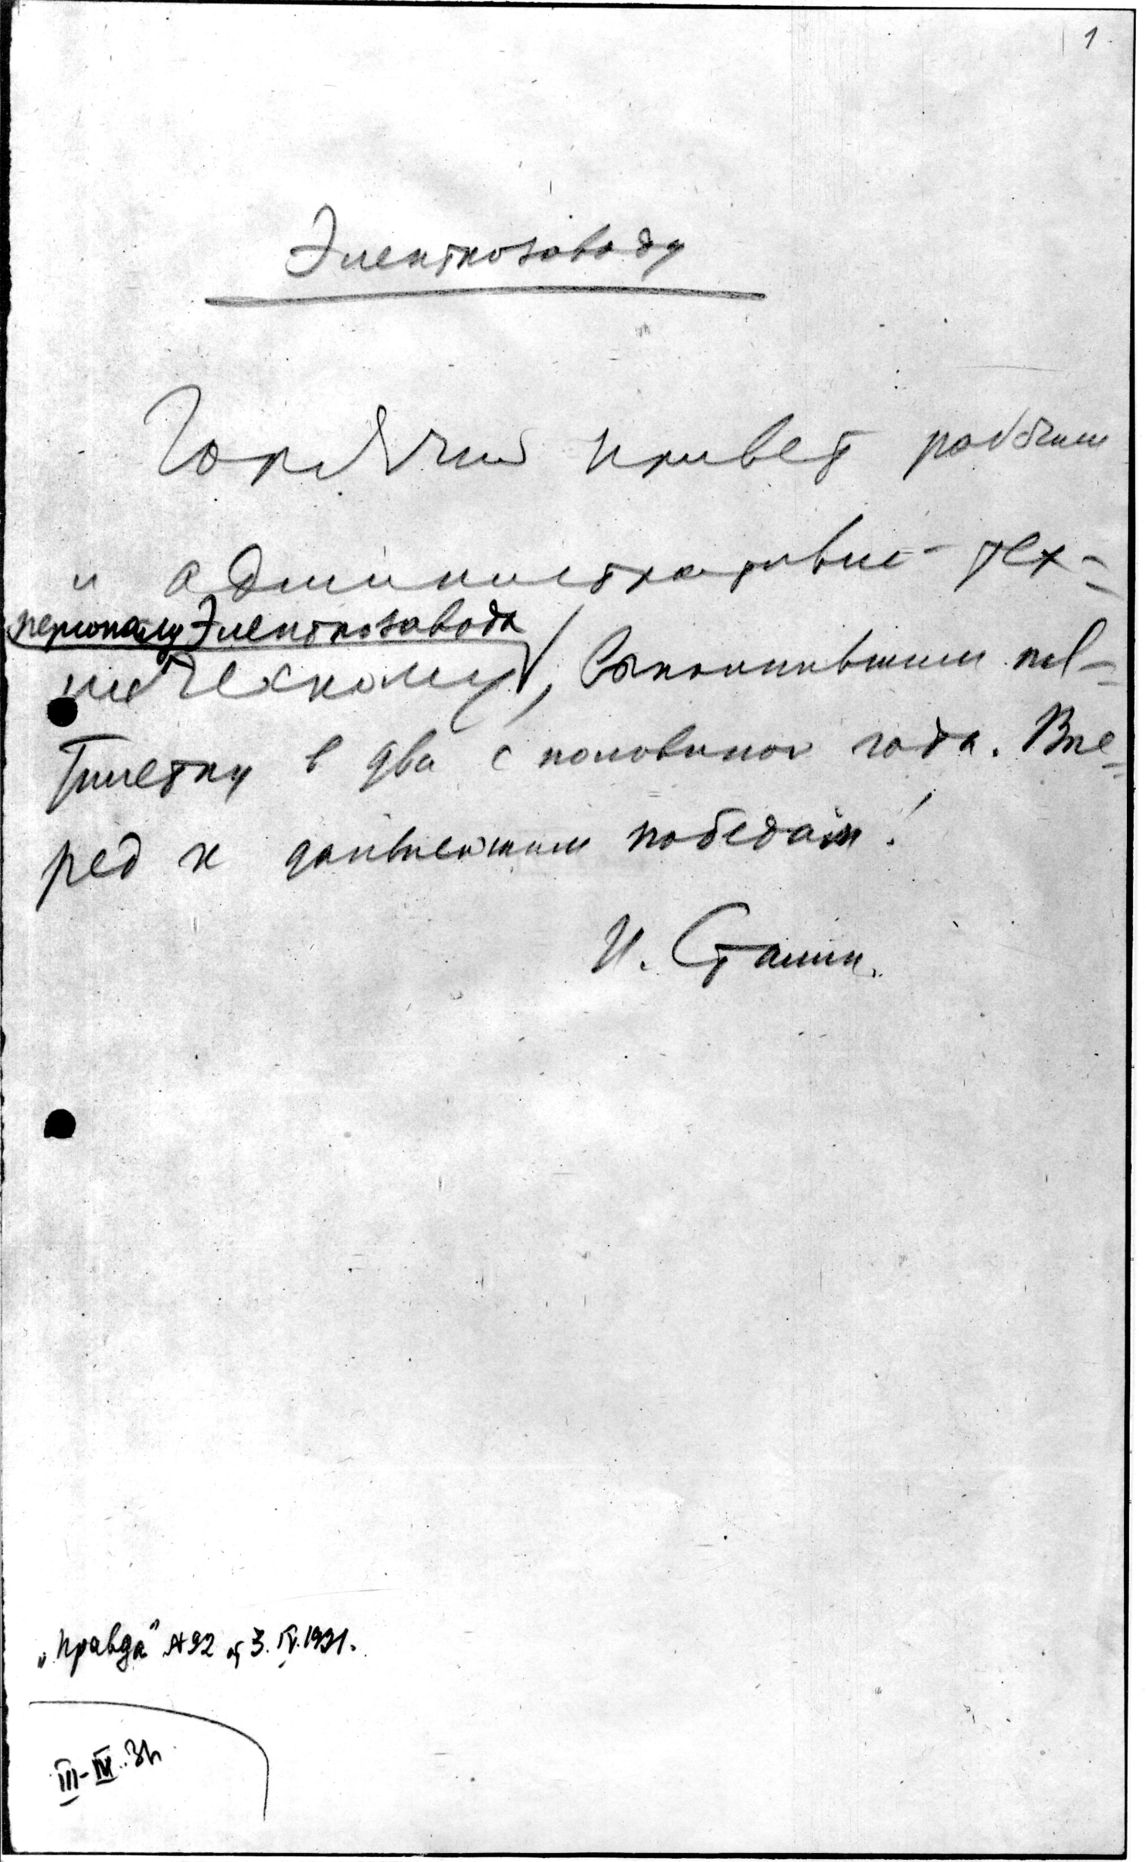 1
Электрозаводу
Горячий привет рабочим
и административно-тех-
персоналу Электрозавода
ническому, выполнившим пя-
тилетку в два с половиной года. Впе-
ред к дальнейшим победам!
И. Сталин.
„Правда" №92 от 3.IV.1931.
III-IV.31г.